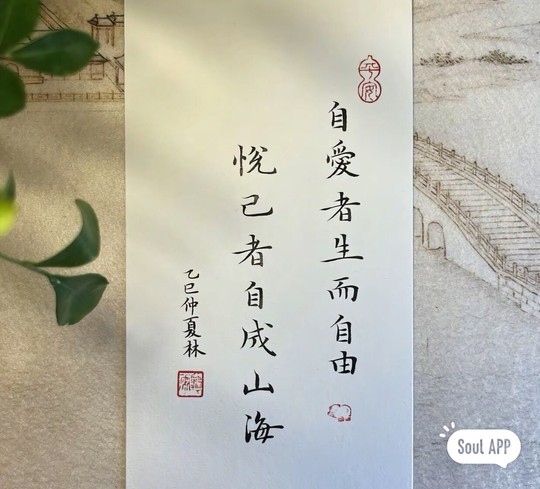 平安
自愛者生而自由
悅己者自成山海
乙巳仲夏林
Soul APP